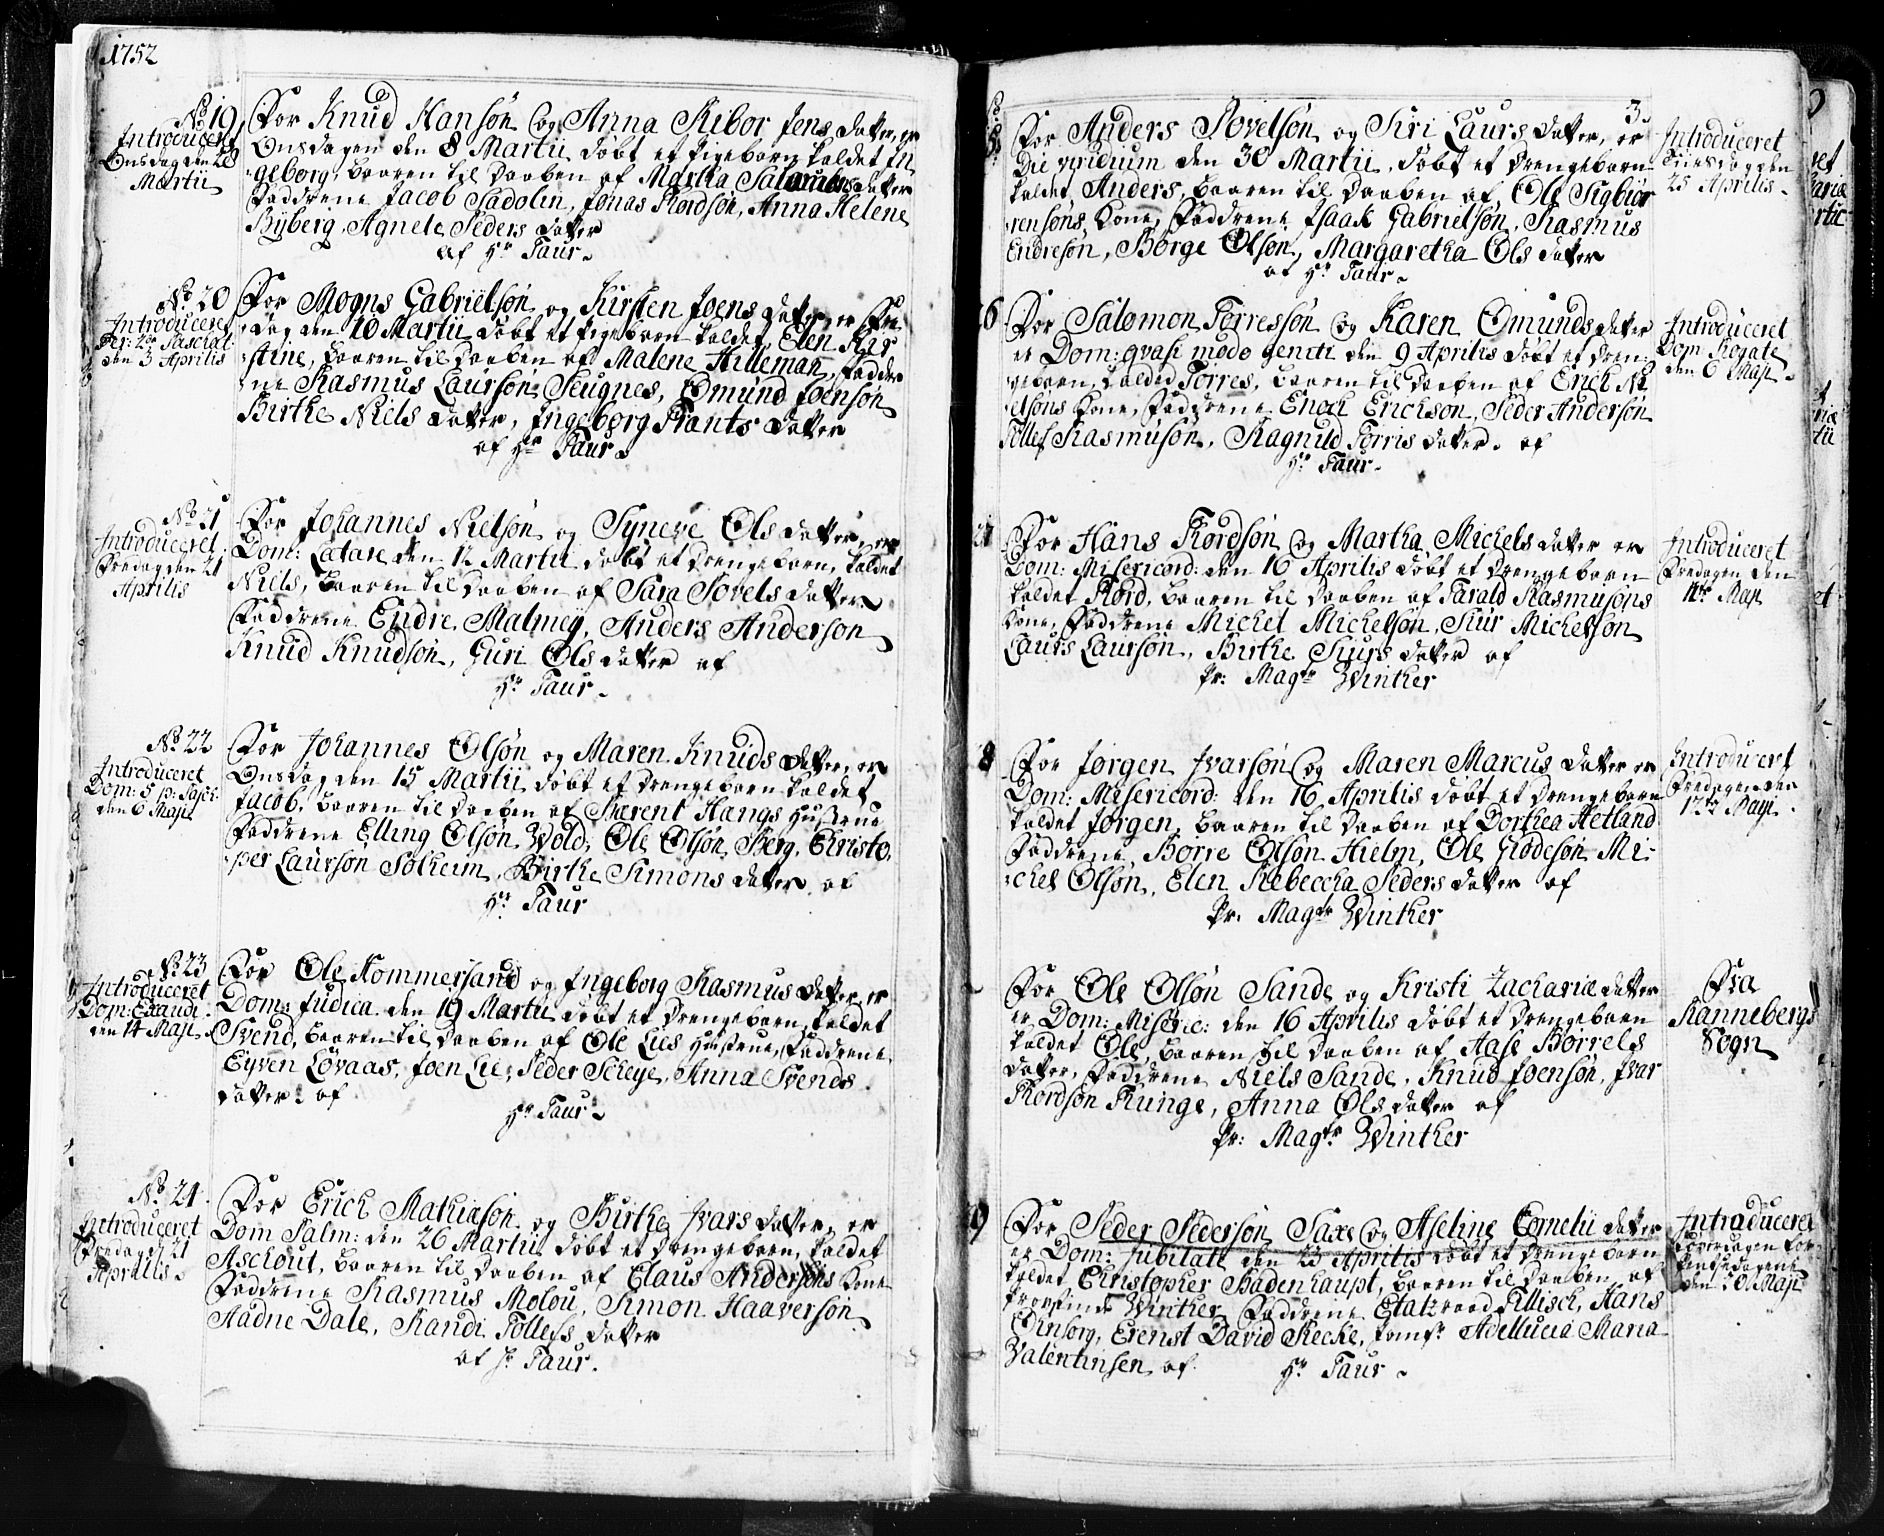 1752
No 19
Introduceret
Onsdag den 28
Martii
For Knud Hansøn og Anna Ribor Jens datter, er
Onsdagen den 8 Martii døbt et Pigebarn kaldet In
geborg, baaren til daaben af Martha datter
Faddrene Jacob Sadolin, Jonas Rørdsøn, Anna Helene
Byberg, Agnete Peders datter
af Hr Taur.
No 20
Introduceret
den 3 Aprilis
For Mogns Gabrielsøn og Kirsten Joens datter, er Fre
dag den 10 Martii døbt et Pigebarn kaldet Elen Kir
stine, baaren til daaben af Malene Hilleman, Faddre
ne Rasmus Laursøn Seugnes, Omund Joensøn
Birthe Niels datter, Ingeborg Frants datter
af Hr Taur.
No 21
Introduceret
Fredag den 21
Aprilis
For Johannes Nielsøn og Syneve Ols datter, er
Dom: Lætare den 12 Martii døbt et drengebarn, kaldet
Niels, baaren til daaben af Sara Povels datter
Faddrene Endre Malmey, Anders Anderson
Knud Knudsøn, Guri Ols datter af
Hr Taur.
No 22
Introduceret
Dom: 5 p: Pasch:
den 6 Maji
For Johannes Olsøn og Maren Knuds datter, er
Onsdag den 15 Martii døbt et drengebarn kaldet
Jacob, baaren til daaben af Berent Hangs Hustrue
Faddrene Elling Olsøn Wold, Ole Olsøn Berg, Christo,
per Laursøn Solheim, Birthe Simons datter af
Hr Taur
No 23
Introduceret
Dom: Exaudi
den 14 Maji
For Ole Hommersand og Ingeborg Rasmus datter er
Dom: Judica den 19 Martii døbt et drengebarn, kaldet
Svend, baaren til daaben af Ole Lies Hustrue, Faddrene
Eyven Lovaas, Joen Lie, Peder Scheye, Anna Svends
datter af
Hr Taur.
No 24
Introduceret
Fredag d 21
Aprilis
For Erich Mathiasøn og Birthe Ivars datter, er
Dom Palm: den 26 Martii døbt et drengebarn, kaldet
Aschout, baaren til daaben af Claus Andersøns Kone
Faddrene Rasmus Molou, Simon Haaversøn
Aadne Dale, Randi Tollefs datter
af Hr Taur.
3.
For Anders Povelsøn og Siri Laurs datter, er
Die viridium den 30 Martii, døbt et drengebarn
kaldet Anders, baaren til daaben af Ole Sigbiør
rensøns Kone, Faddrene Isaak Gabrielsøn, Rasmus
Endresøn, Børge Olsøn, Margaretha Ols datter
af Hr Taur.
Introduceret
Tiirsdag den
25 Aprilis.
6
For Salomon Torresøn og Karen Omunds datter
er Dom: qvasi modo geniti den 9 Aprilis døbt et dren:
gebarn, kalded Torres, baaren til daaben af Erich Ni
elsøns Kone, Faddrene Enoch Erichson, Peder Andersøn
Tollef Rasmusøn, Ragnild Torris datter. af
Hr Taur.
Introduceret
Dom Rogate
den 6 Maji.
For Hans Rørdsøn og Martha Michels datter er
Dom: Misericord: den 16 Aprilis døbt et drengebarn
kaldet Rørd, baaren til daaben af Tarald Rasmusøns
Kone, Faddrene Michel Michelsøn, Siur Michelsøn
Laurs Laursøn, Birthe Siurs datter af
Pr: Magr Winther
Introduceret
Fredagen den
Maji
8
For Jørgen Ivarsøn og Maren Marcus datter er
Dom: Misericord: den 16 Aprilis døbt et drengebarn
kaldet Jørgen, baaren til daaben af Dorthea Hetland
Faddrene Børre Olsøn Hielm, Ole Gødesøn Mi-
chel Olsøn, Elen Rebeccha Peders datter af
Pr: Magtr Winther
Introducert
Fredagen den
Maji.
For Ole Olsøn Sande og Kristi Zachariæ datter
er Dom: Miseric: den 16 Aprilis døbt et drengebarn
kaldet Ole, baaren til daaben af Aase Børrels
datter, Faddrene Niels Sande, Knud Joensøn, Ivar
Rørdsøn Runge, Anna Ols datter af
Pr: Magtr Winther
Fra
Rannebergs
Sogn
9
For Peder Pedersøn Saxe og Aseline Cornelii datter
er Dom: Jubilate den 23 Aprilis døbt et drengebarn
kaldet Christopher Badenhaupt, baaren til daaben af
Provstinde Winther Faddrene Etatzraad Tillisch, Hans
Erenst David Recke, Jomfr Adellucia Maria
Valentinsen af
Hr Taur.
Introduceret
Løverdagen for
Pintzedagene
den 20 Maji